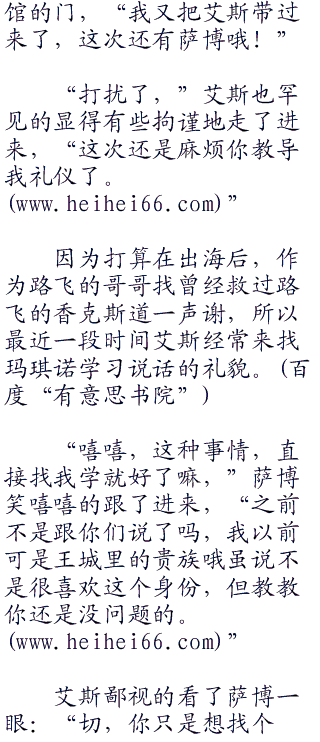 馆的门，“我又把艾斯带过
来了，这次还有萨博哦！”
“打扰了，”艾斯也罕
见的显得有些拘谨地走了进
来，“这次还是麻烦你教导
我礼仪了。
(www.heihei66.com)”
因为打算在出海后，作
为路飞的哥哥找曾经救过路
飞的香克斯道一声谢，所以
最近一段时间艾斯经常来找
玛琪诺学习说话的礼貌。(百
度“有意思书院”)
“嘻嘻，这种事情，直
接找我学就好了嘛，”萨博
笑嘻嘻的跟了进来，“之前
不是跟你们说了吗，我以前
可是王城里的贵族哦虽说不
是很喜欢这个身份，但教教
你还是没问题的。
(www.heihei66.com)”
艾斯鄙视的看了萨博一
眼：“切，你只是想找个